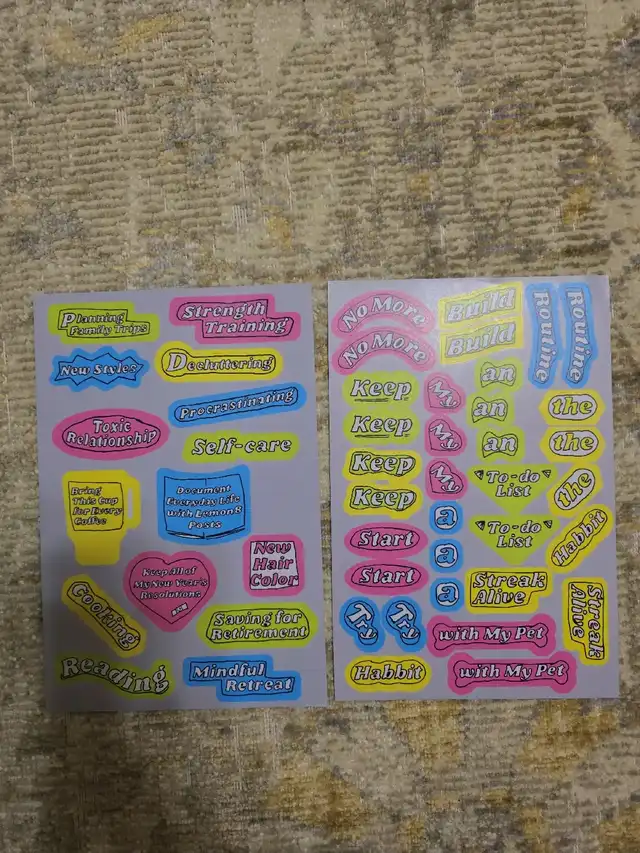 Planning
Family Trips
Strength
Training
New Styles
Decluttering
Procrastinating
Toxic
Relationship
Self-care
Bring
This Cup
for Every
Coffee
Document
Everyday Life
with Lemon8
Posts
Keep All of
My New Year's
Resolutions
New
Hair
Color
Cooking
Saving for
Retirement
Reading
Mindful
Retreat
No More
No More
Build
Build
Routine
Routine
Keep
Keep
Keep
Keep
My
My
My
an
an
an
the
the
the
To-do
List
To-do
List
Start
Start
a
a
a
Habbit
Streak
Alive
Streak
Alive
Try
Try
with My Pet
with My Pet
Habbit